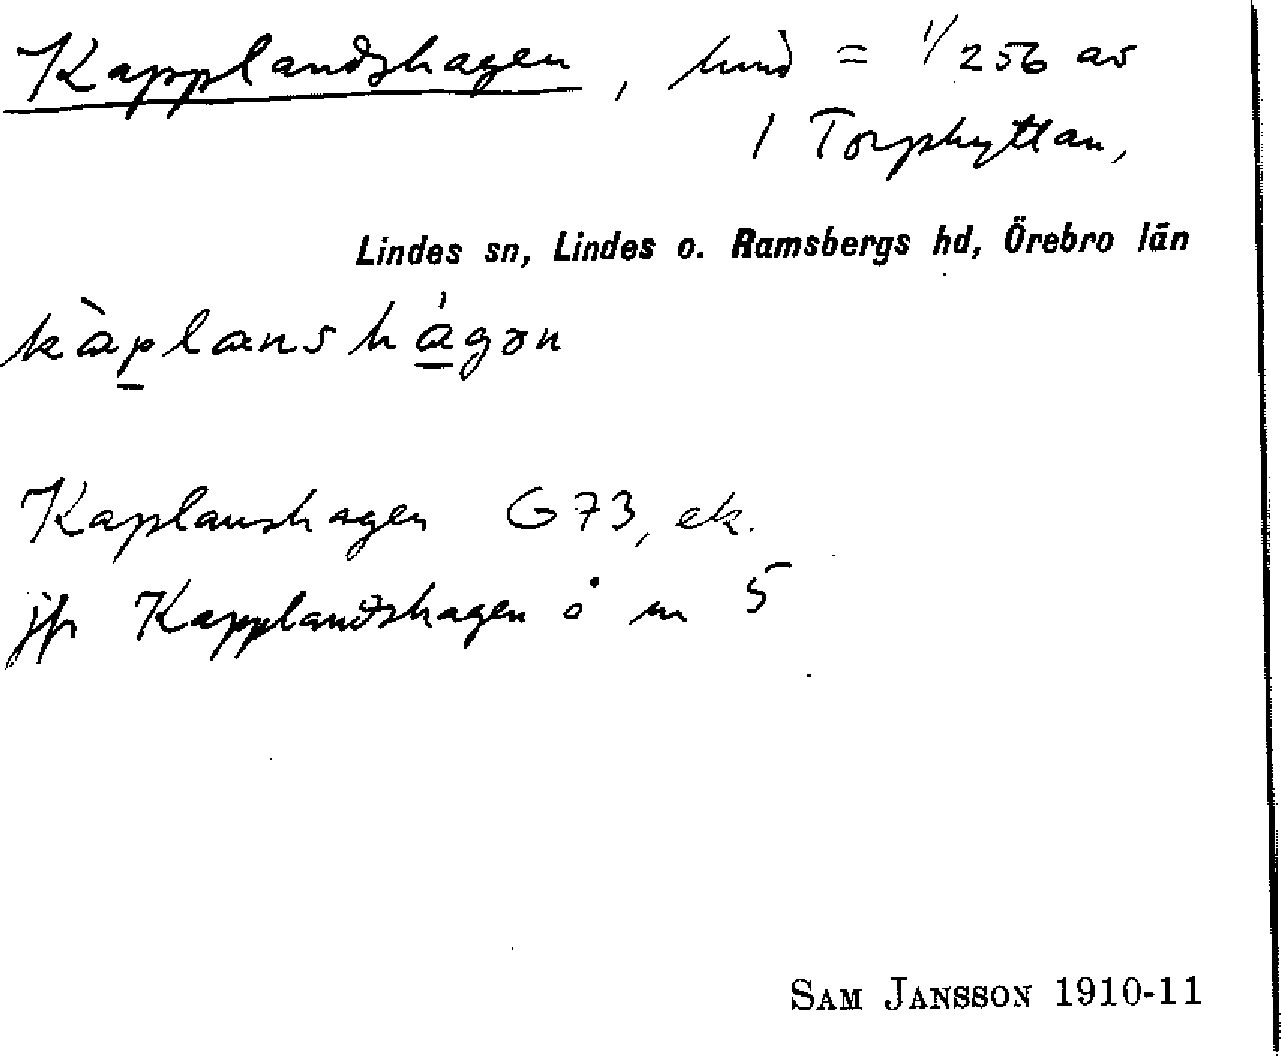 Kapplandshagen, hmd = 1/256 av
1 Torphyttan,
Lindes sn, Lindes o. Ramsbergs hd, Örebro län
kàplanshágən
Kaplanshagen G73, ek.
jfr Kapplandshagen å m 5
SAM JANSSON 1910-11